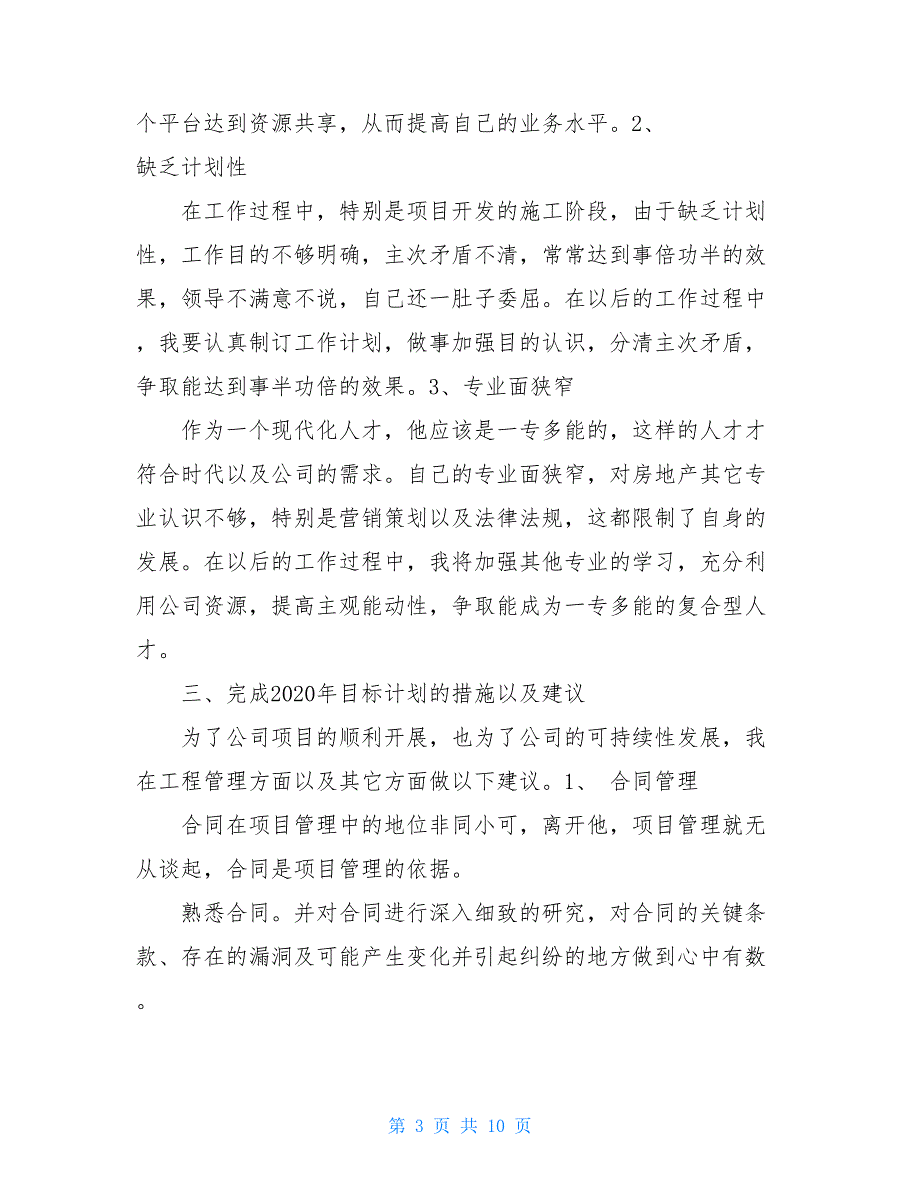 个平台达到资源共享，从而提高自己的业务水平。2、
缺乏计划性
在工作过程中，特别是项目开发的施工阶段，由于缺乏计划
性，工作目的不够明确，主次矛盾不清，常常达到事倍功半的效
果，领导不满意不说，自己还一肚子委屈。在以后的工作过程中
，我要认真制订工作计划，做事加强目的认识，分清主次矛盾，
争取能达到事半功倍的效果。3、专业面狭窄
作为一个现代化人才，他应该是一专多能的，这样的人才才
符合时代以及公司的需求。自己的专业面狭窄，对房地产其它专
业认识不够，特别是营销策划以及法律法规，这都限制了自身的
发展。在以后的工作过程中，我将加强其他专业的学习，充分利
用公司资源，提高主观能动性，争取能成为一专多能的复合型人
才。
三、完成2020年目标计划的措施以及建议
为了公司项目的顺利开展，也为了公司的可持续性发展，我
在工程管理方面以及其它方面做以下建议。1、 合同管理
合同在项目管理中的地位非同小可，离开他，项目管理就无
从谈起，合同是项目管理的依据。
熟悉合同。并对合同进行深入细致的研究，对合同的关键条
款、存在的漏洞及可能产生变化并引起纠纷的地方做到心中有数
。
第 3 页 共 10 页